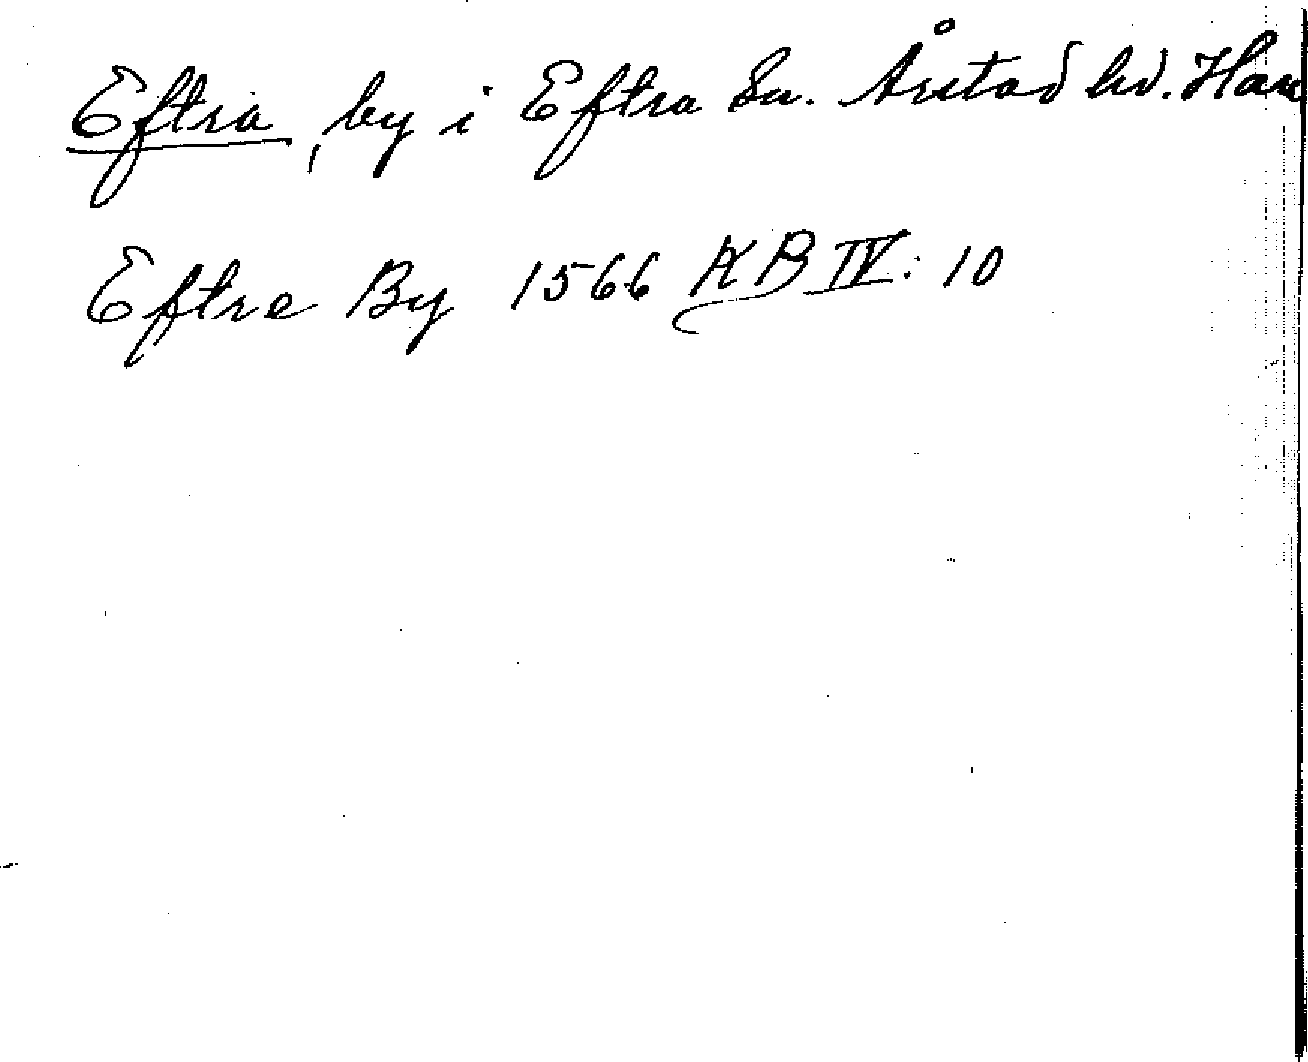 Eftra, by i Eftra Sn. Årstad hd. Hall
Eftre By 1566 KB IV: 10